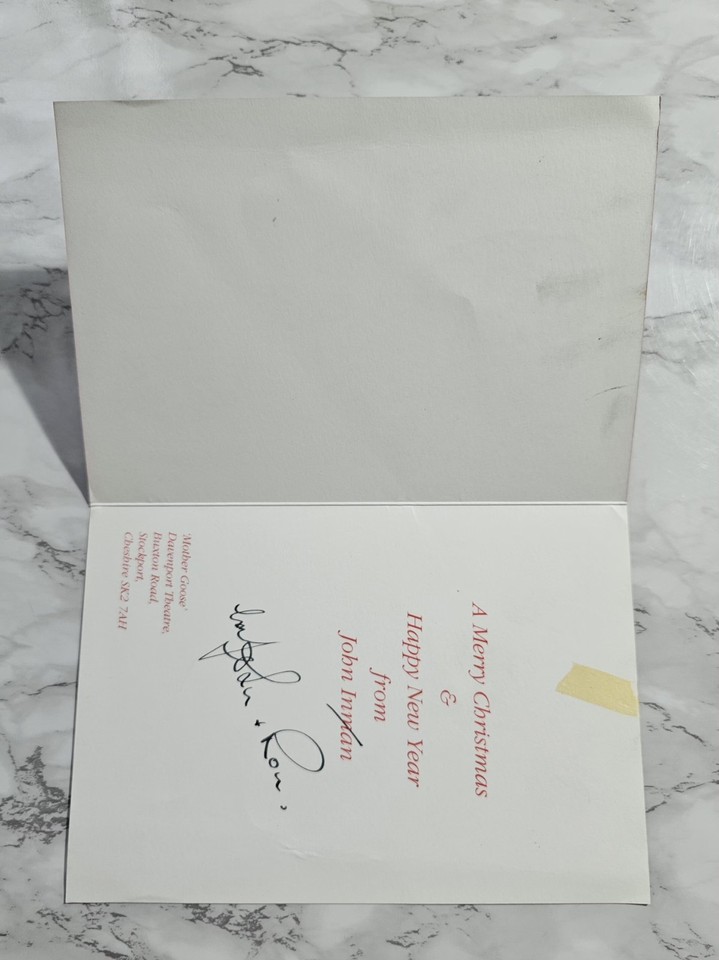 A Merry Christmas
&
Happy New Year
from
John Inman
John + Ron.
'Mother Goose'
Davenport Theatre,
Buxton Road,
Stockport,
Cheshire SK2 7AH